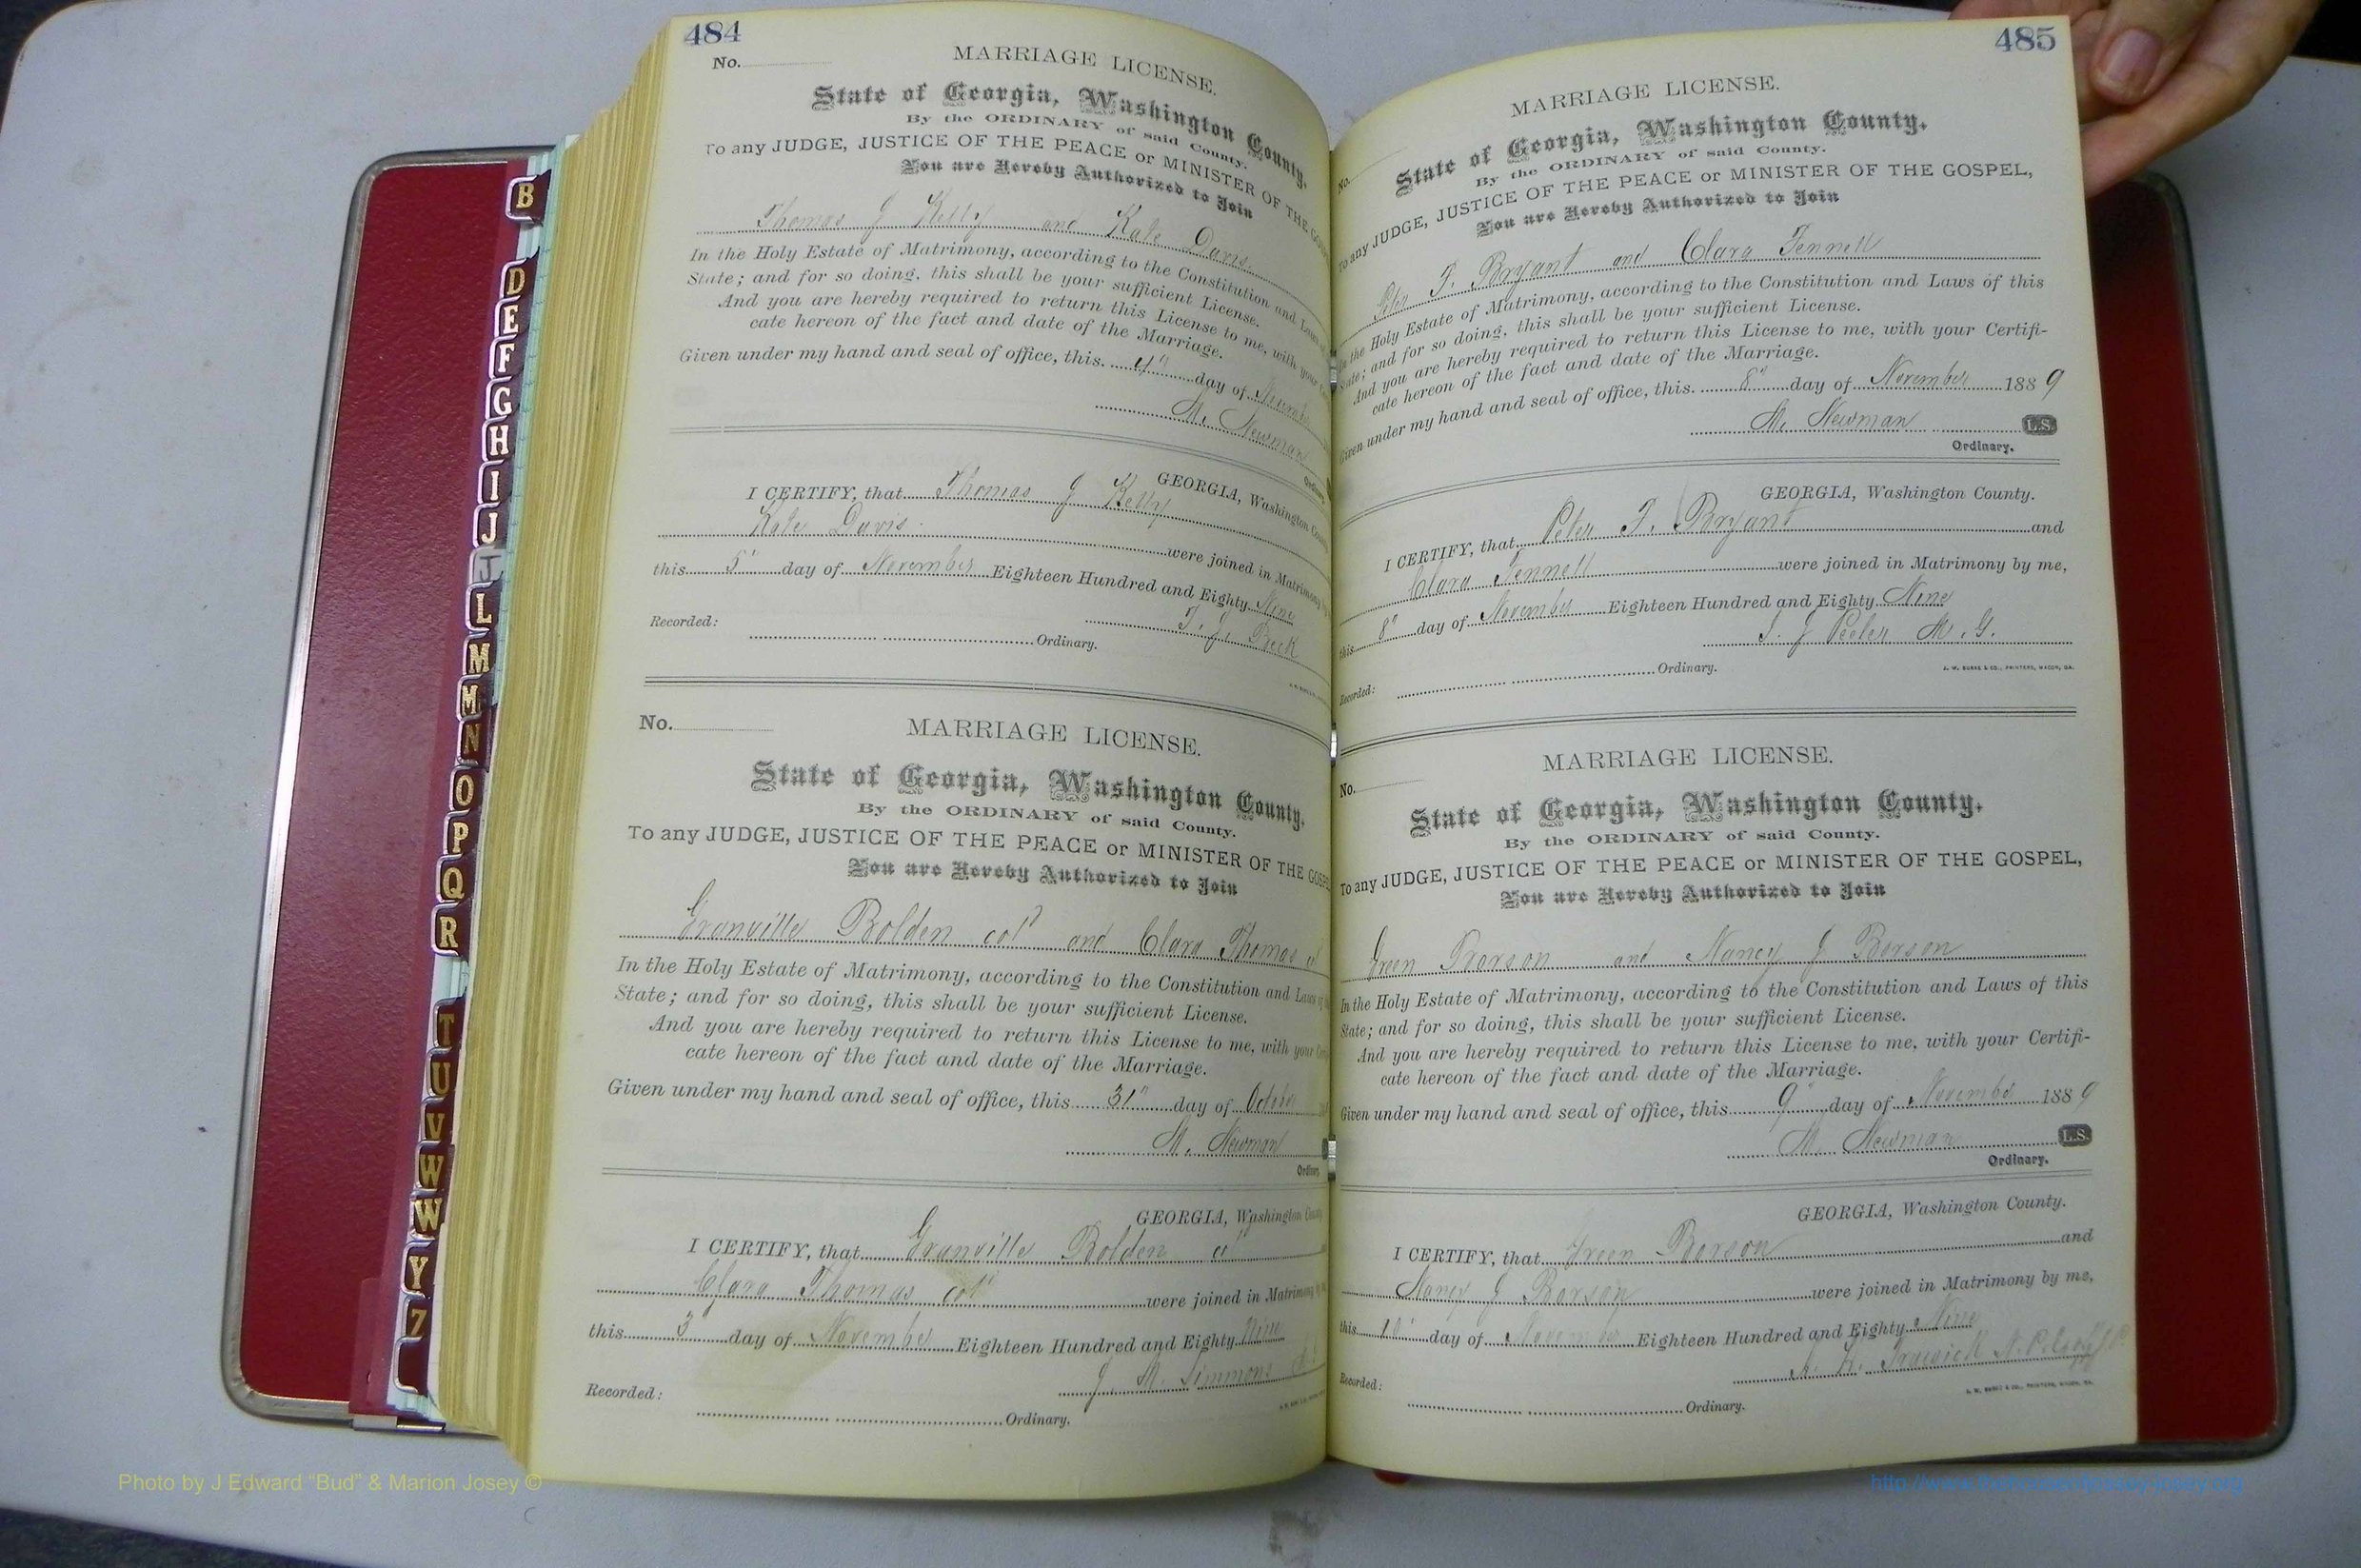 484
No.
MARRIAGE LICENSE.
State of Georgia, Washington County.
By the ORDINARY of said County.
To any JUDGE, JUSTICE OF THE PEACE or MINISTER OF THE
You are Hereby Authorized to Join
Thomas J Kelly and Kate Davis.
In the Holy Estate of Matrimony, according to the Constitution and Laws
State; and for so doing, this shall be your sufficient License.
And you are hereby required to return this License to me, with your
cate hereon of the fact and date of the Marriage.
Given under my hand and seal of office, this 4" day of November
M. Newman
Ordinary
GEORGIA, Washington County
I CERTIFY, that Thomas J Kelly
Kate Davis were joined in Matrimony
this 5" day of November Eighteen Hundred and Eighty Nine
T. J. Beck
Recorded:
Ordinary.
No.
MARRIAGE LICENSE.
State of Georgia, Washington County.
By the ORDINARY of said County.
To any JUDGE, JUSTICE OF THE PEACE or MINISTER OF THE GOSPEL
You are Hereby Authorized to Join
Granville Bolden col and Clara Thomas
In the Holy Estate of Matrimony, according to the Constitution and Laws
State; and for so doing, this shall be your sufficient License.
And you are hereby required to return this License to me, with your
cate hereon of the fact and date of the Marriage.
Given under my hand and seal of office, this 31" day of October
M. Newman
Ordinary
GEORGIA, Washington
I CERTIFY, that Granville Bolden
Clara Thomas col were joined in Matrimony
this 3" day of November Eighteen Hundred and Eighty Nine
J. M. Simmons
Recorded:
Ordinary.
485
No.
MARRIAGE LICENSE.
State of Georgia, Washington County.
By the ORDINARY of said County.
To any JUDGE, JUSTICE OF THE PEACE or MINISTER OF THE GOSPEL,
You are Hereby Authorized to Join
Bryant and Clara Fennell
In the Holy Estate of Matrimony, according to the Constitution and Laws of this
State; and for so doing, this shall be your sufficient License.
And you are hereby required to return this License to me, with your Certifi-
cate hereon of the fact and date of the Marriage.
Given under my hand and seal of office, this 8" day of November 1889
M. Newman L.S.
Ordinary.
GEORGIA, Washington County.
I CERTIFY, that Peter Bryant and
Clara Fennell were joined in Matrimony by me,
this 8" day of November Eighteen Hundred and Eighty Nine
J Peeler M. G.
J. W. BURKE & CO., PRINTERS, MACON, GA.
Recorded:
Ordinary.
MARRIAGE LICENSE.
No.
State of Georgia, Washington County.
By the ORDINARY of said County.
To any JUDGE, JUSTICE OF THE PEACE or MINISTER OF THE GOSPEL,
You are Hereby Authorized to Join
Green and Nancy J
In the Holy Estate of Matrimony, according to the Constitution and Laws of this
State; and for so doing, this shall be your sufficient License.
And you are hereby required to return this License to me, with your Certifi-
cate hereon of the fact and date of the Marriage.
Given under my hand and seal of office, this 9" day of November 1889
M. Newman L.S.
Ordinary.
GEORGIA, Washington County.
I CERTIFY, that Green and
Nancy J were joined in Matrimony by me,
this day of November Eighteen Hundred and Eighty Nine
Trawick N. P.
Recorded:
Ordinary.
B
D
E
F
G
H
I
J
J
L
M
M
N
O
P
Q
R
T
U
V
W
W
Y
Z
Photo by J Edward “Bud” & Marion Josey ©